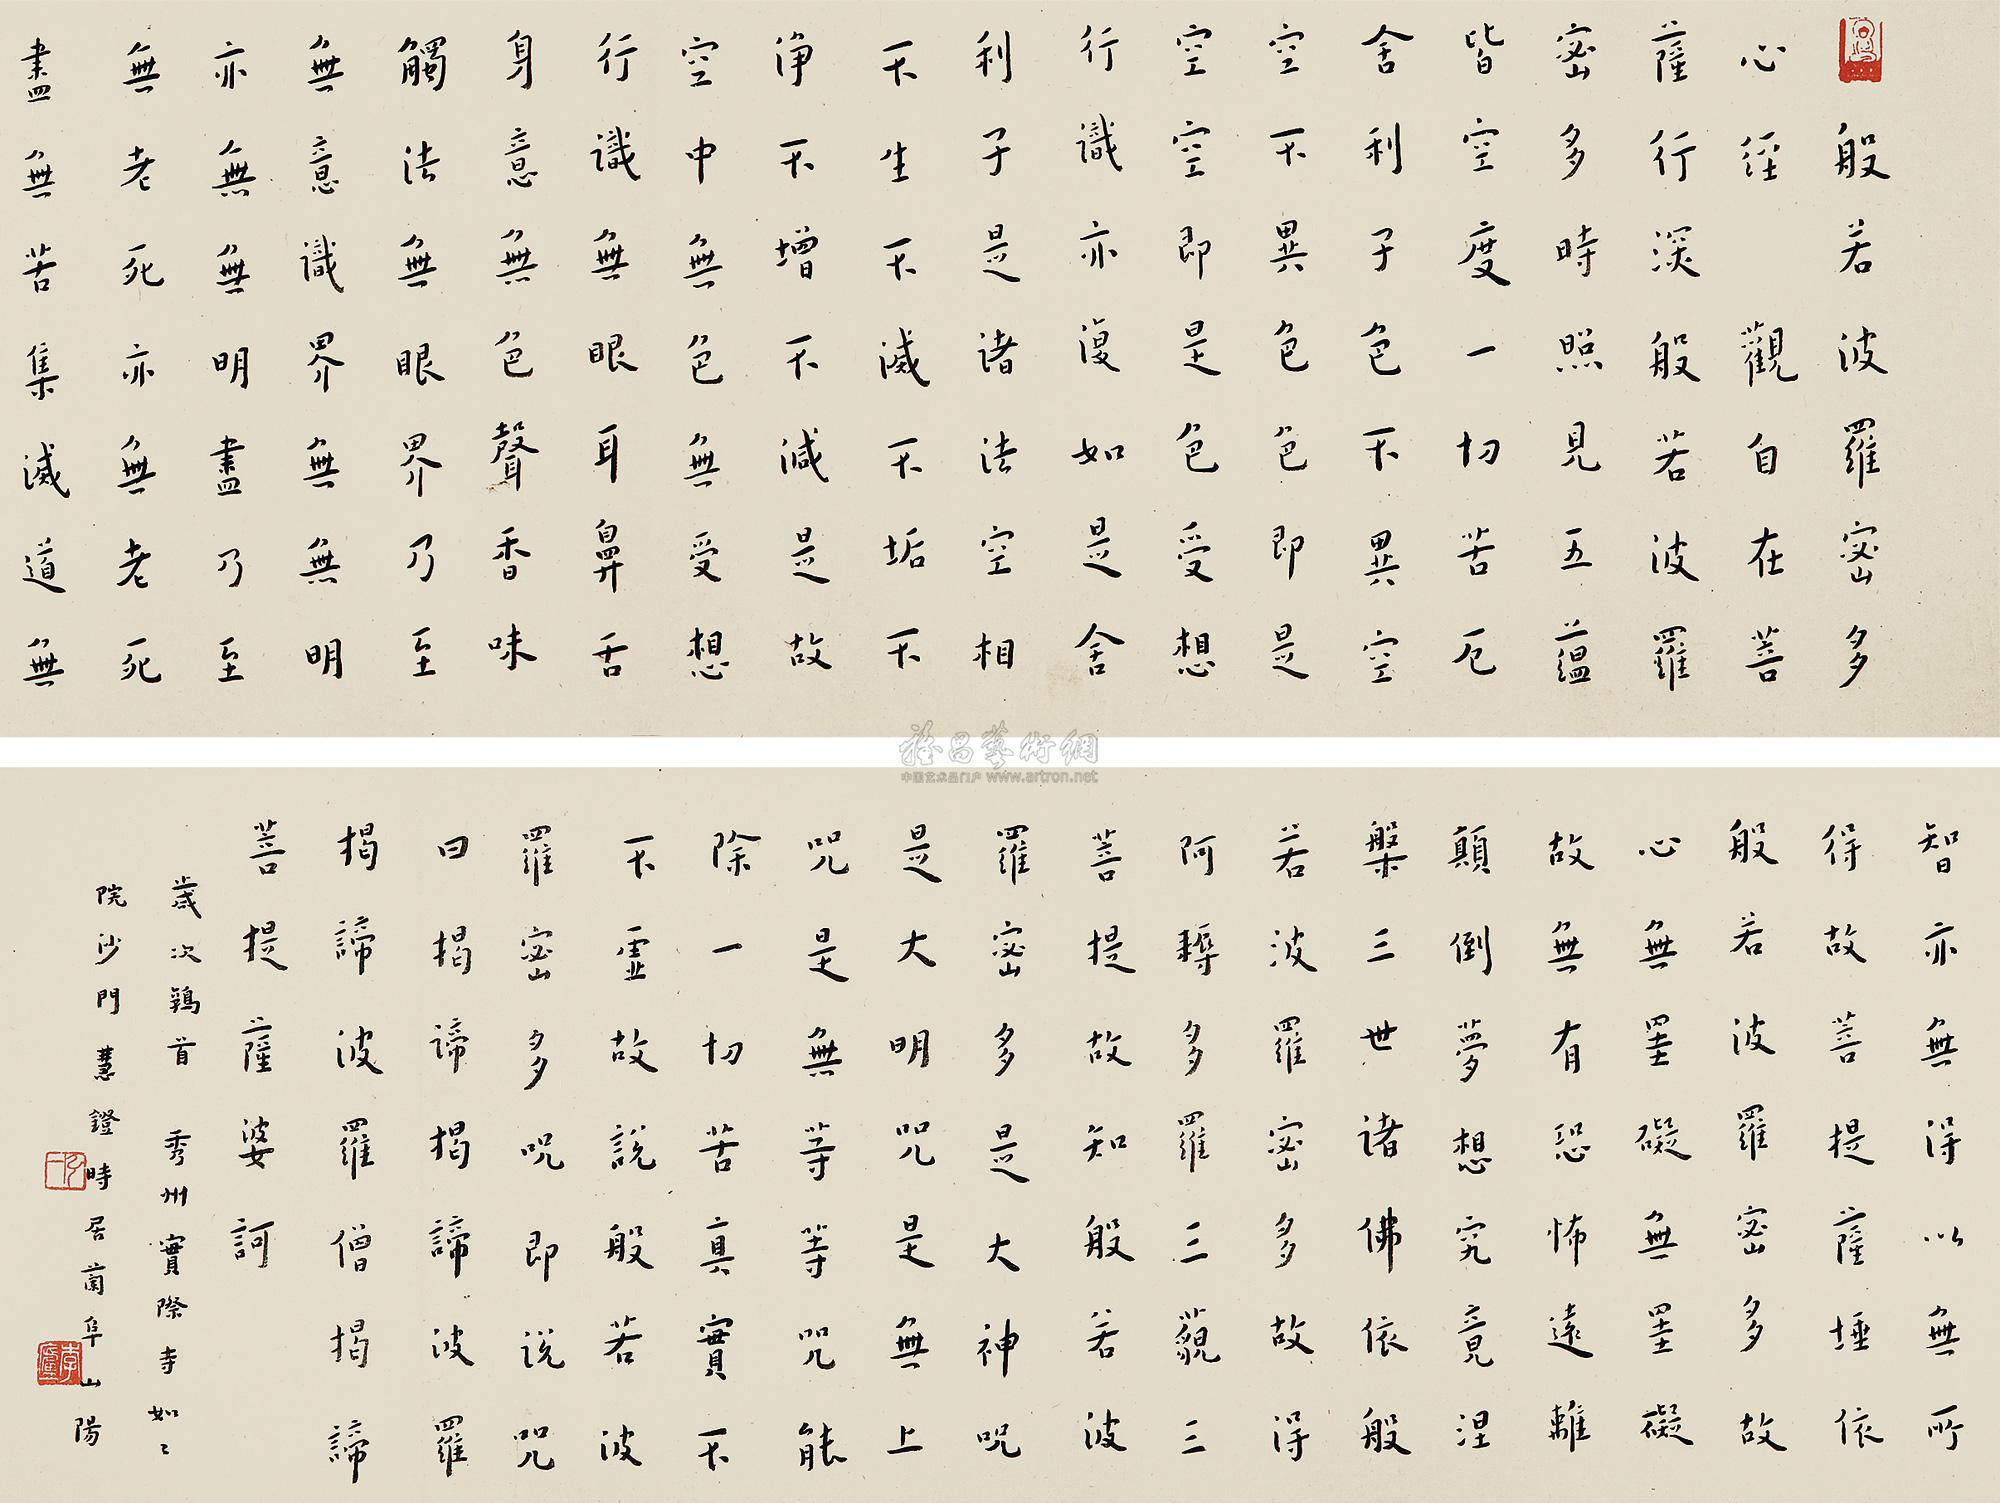 般若波羅密多
心經　觀自在菩
薩行深般若波羅
密多時照見五蘊
皆空度一切苦厄
舍利子色不異空
空不異色色即是
空空即是色受想
行識亦復如是舍
利子是諸法空相
不生不滅不垢不
淨不增不減是故
空中無色無受想
行識無眼耳鼻舌
身意無色聲香味
觸法無眼界乃至
無意識界無無明
亦無無明盡乃至
無老死亦無老死
盡無苦集滅道無
智亦無得以無所
得故菩提薩埵依
般若波羅密多故
心無罣礙無罣礙
故無有恐怖遠離
顛倒夢想究竟涅
槃三世諸佛依般
若波羅密多故得
阿耨多羅三藐三
菩提故知般若波
羅密多是大神呪
是大明咒是無上
咒是無等等咒能
除一切苦真實不
不虛故說般若波
羅密多呪即說咒
曰揭諦揭諦波羅
揭諦波羅僧揭諦
菩提薩婆訶
歲次鶉首　秀州實際寺如ミ
院沙門慧鐙時居蘭阜山陽
雅昌藝術網
中国艺术品门户 www.artron.net